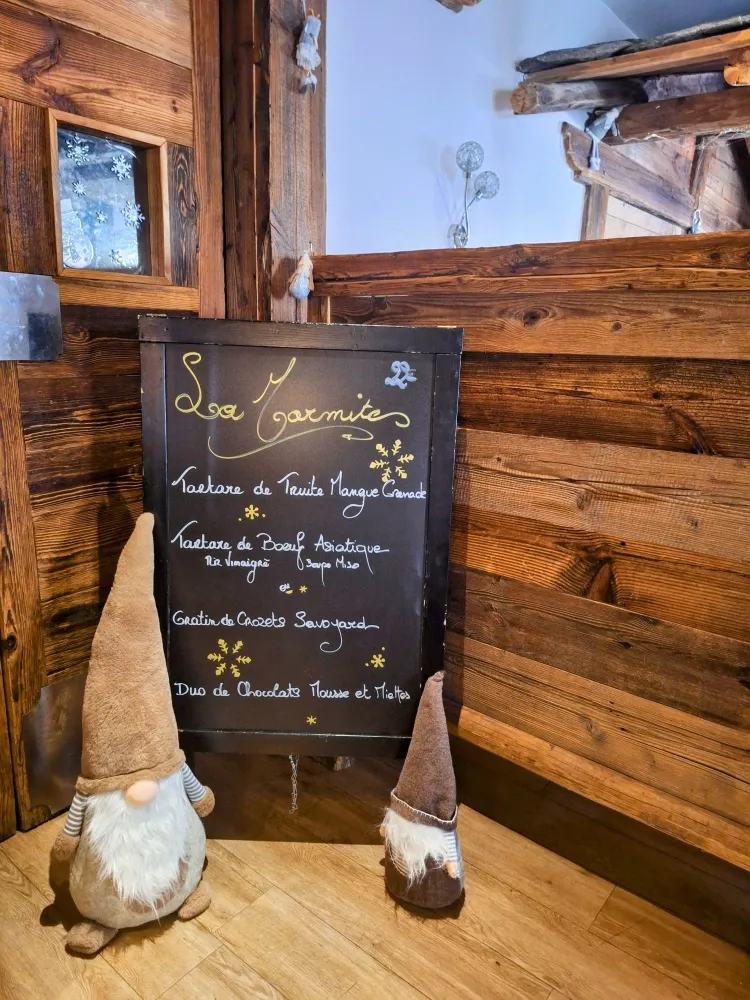 La Marmite
22€
Tartare de Truite Mangue Grenade
Tartare de Bœuf Asiatique
Riz Vinaigré Soupe Miso
ou
Gratin de Crozets Savoyard
Duo de Chocolats Mousse et Miettes